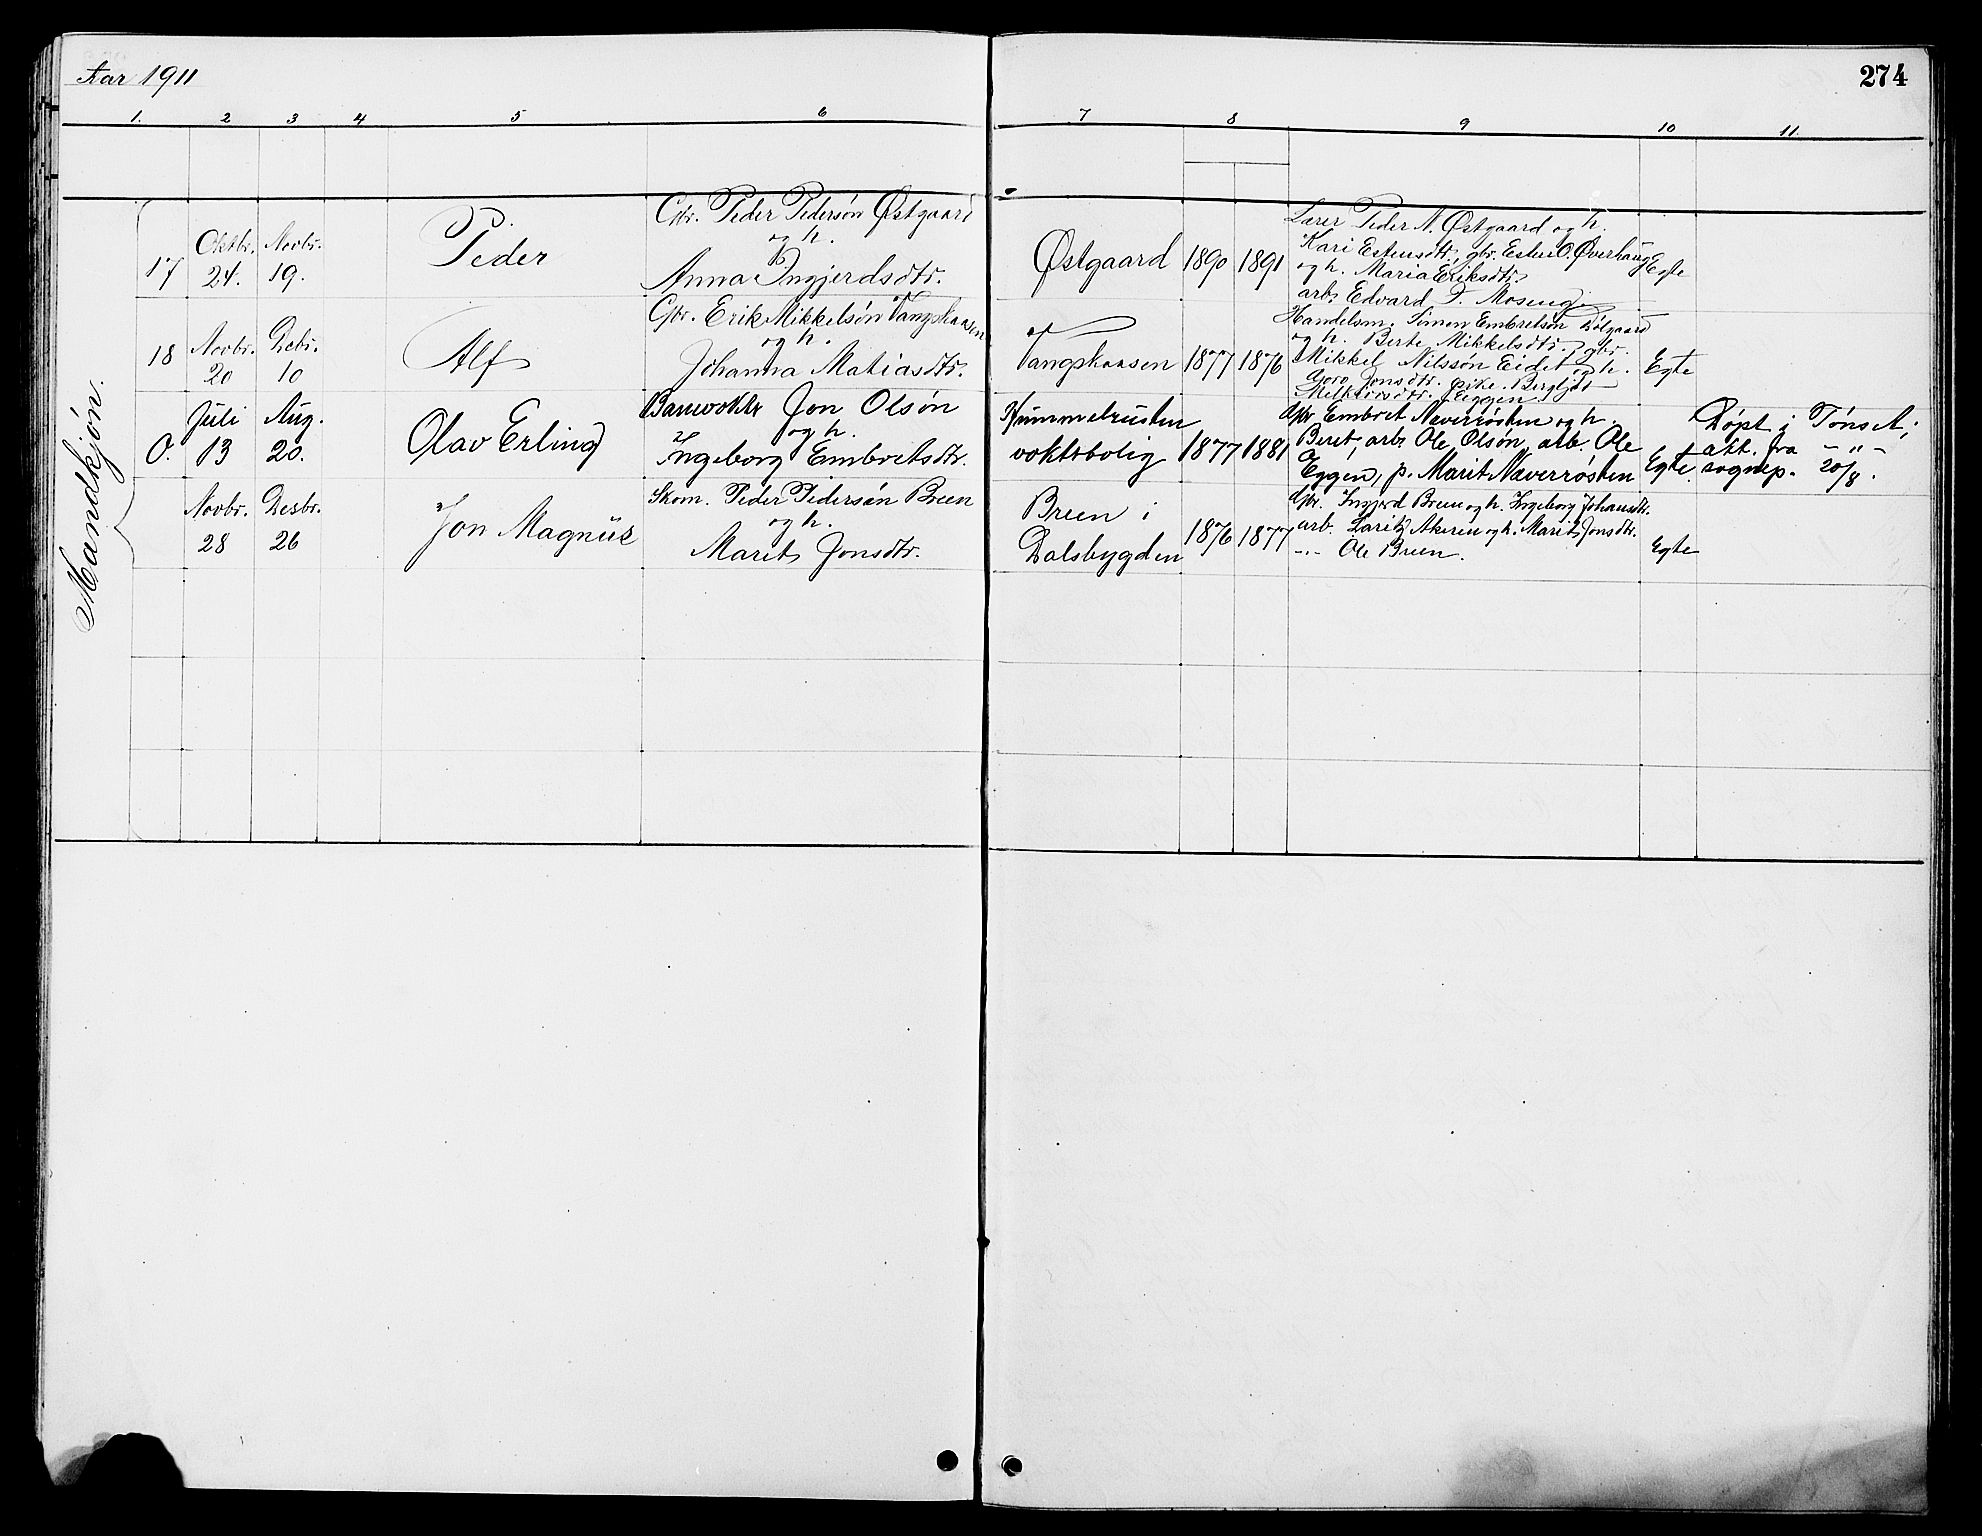 Aar 1911
274
1. 2 3 4 5 6 7 8 9 10 11.
Mandkjøn.
17
Oktbr. 24.
Novbr. 19.
Peder
Gbr. Peder Pedersøn Østgaard
og h.
Anna Ingjerdsdtr.
Østgaard
1890
1891
Lærer Peder N. Østgaard og h.
Kari Estensdtr., gbr. Esten O. Øverhaug
og h. Maria Eriksdtr.
arb. Edvard P. Moseng
Egte
18
Novbr. 20
Debr. 10
Alf
Gbr. Erik Mikkelsøn Vangskaasen
og h.
Johanna Matiasdtr.
Vangskaasen
1877
1876
Handelsm. Simen Embretsøn Dølgaard
og h. Berte Mikkelsdtr. gbr.
Mikkel Nilssøn Eidet og h.
Goro Jonsdtr. pike Bergljot
Eggen
Egte
O.
Juli 13
Aug. 20.
Olav Erling
Banevoktr Jon Olsøn
og h.
Ingeborg Embretsdtr.
Hummelrusten
voktbolig
1877
1881
Gbr. Embret Næverrøsten og h.
Beret, arb. Ole Olsøn, arb. Ole
Eggen, p. Marit Næverrøsten
Egte.
Døpt i Tønset;
att. fra -"-
sognep. 20/8.
Novbr. 28
Desbr. 26
Jon Magnus
Skom. Peder Pedersøn Breen
og h.
Marit Jonsdtr.
Breen i
Dalsbygden
1876
1877
Gbr. Ingjerd Breen og h. Ingeborg Johansdtr.
arb. Laritz Akeren og h. Marit Jonsdtr.
-"- Ole Breen.
Egte